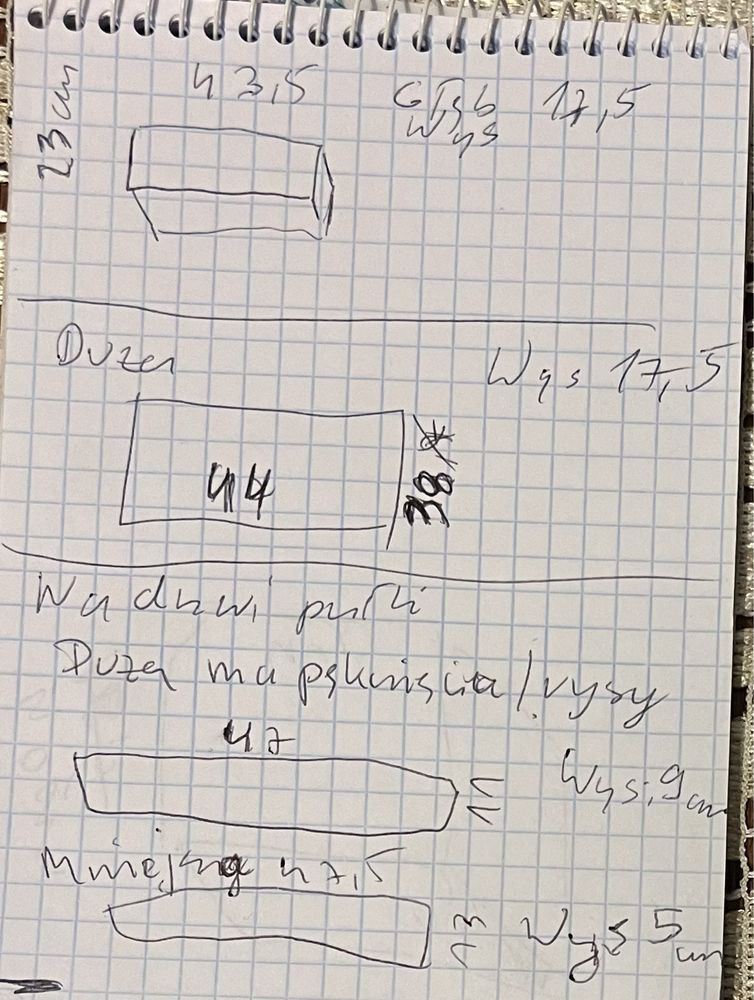 43,5 Głęb 17,5
Wys
23 cm
Duża Wys 17,5
44
38
Na drzwi półki
Duża ma pęknięcia / rysy
47
11 Wys. 9 cm
Mniejsza 47,5
Wys 5 cm